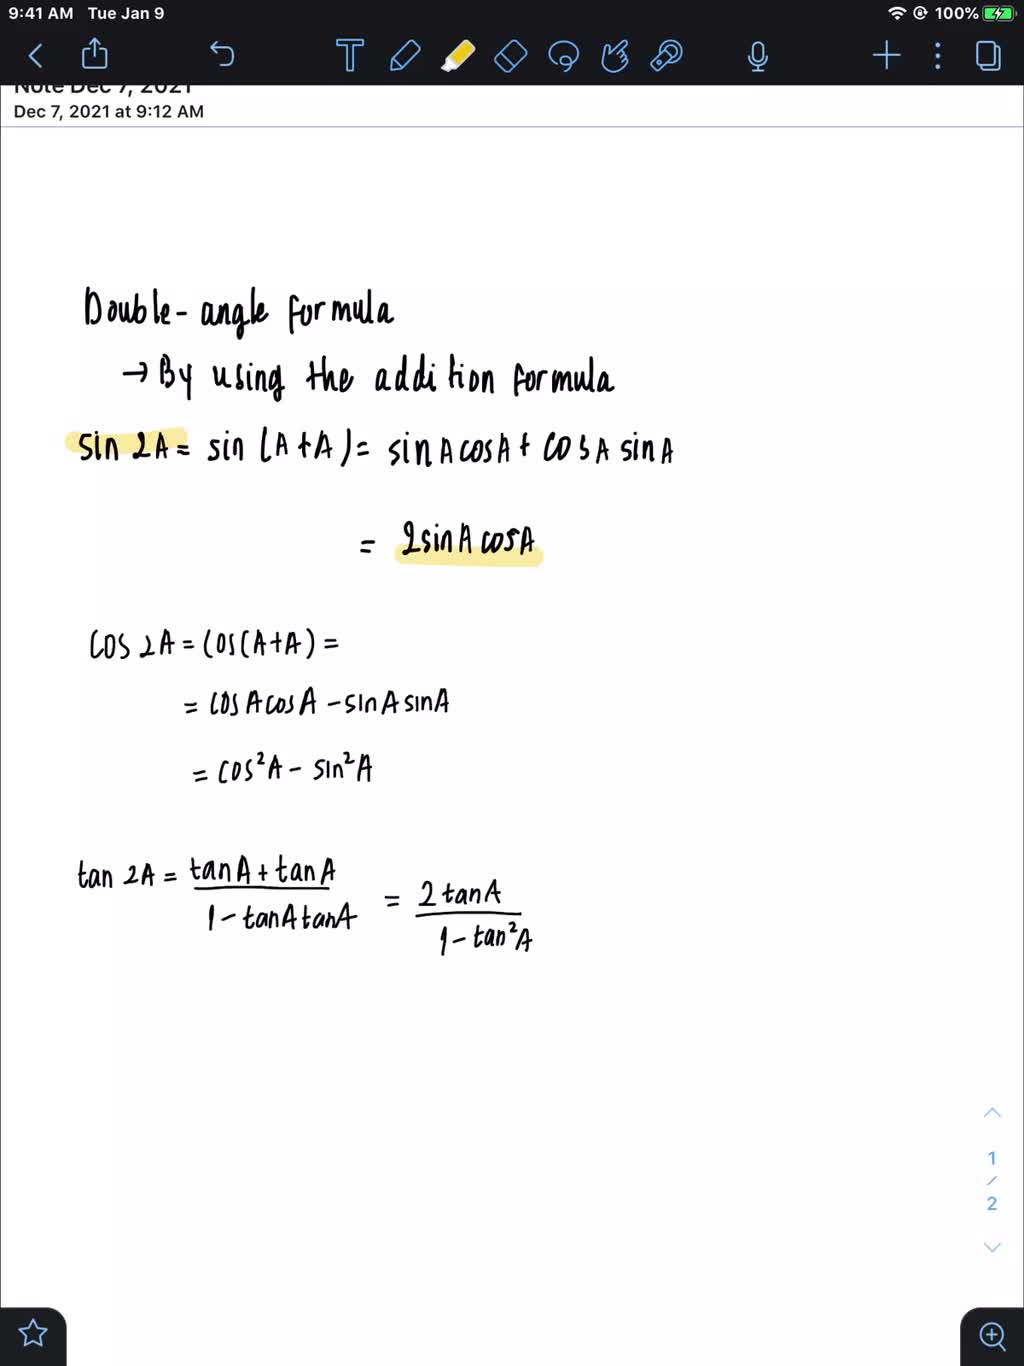 9:41 AM Tue Jan 9 100%
Note Dec 7, 2021
Dec 7, 2021 at 9:12 AM
Double-angle formula
→ By using the addition formula
sin 2A = sin (A+A) = sinAcosA + cosA sinA
= 2sinA cosA
cos 2A = cos(A+A) =
= cosAcosA - sinA sinA
= cos²A - sin²A
tan 2A = (tanA + tanA)/(1 - tanAtanA) = (2 tanA)/(1 - tan²A)
1
/
2